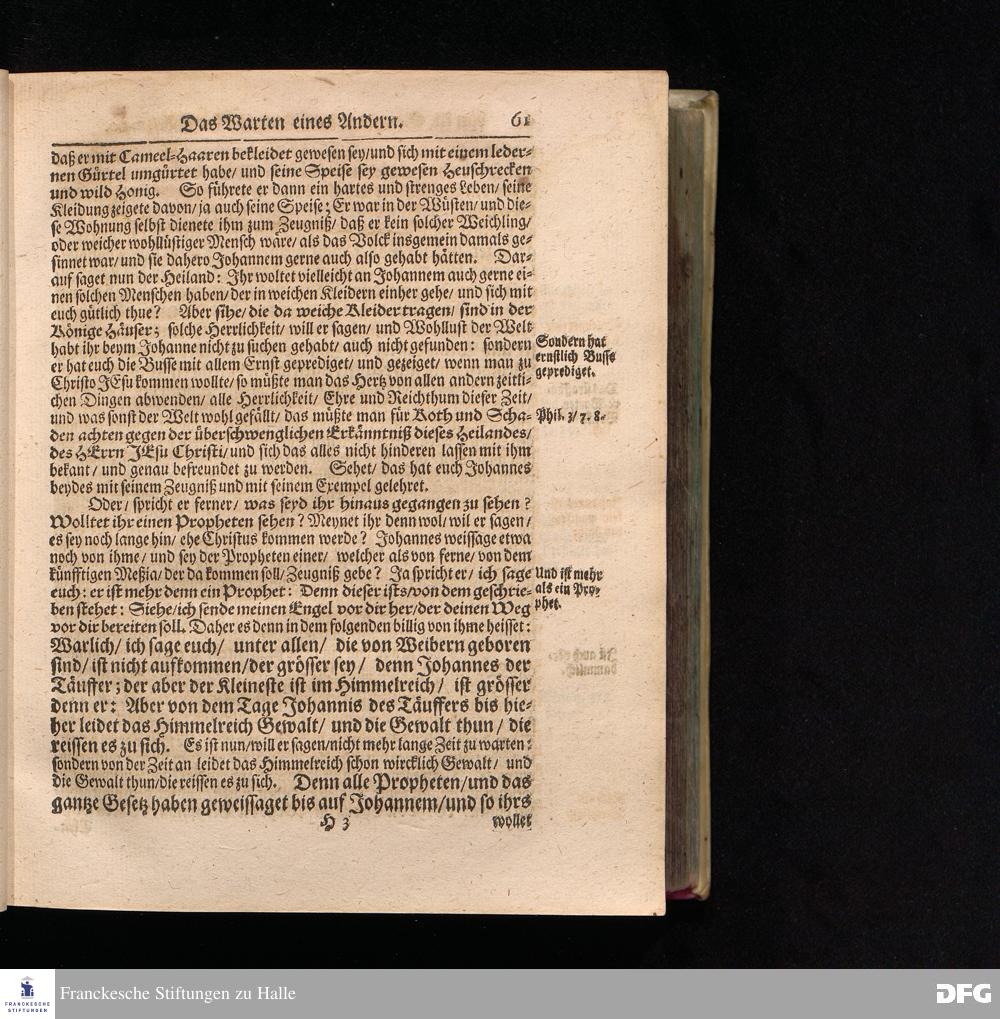 Das Warten eines Andern. 61
daß er mit Cameel-Haaren bekleidet gewesen sey/und sich mit einem leder-
nen Gürtel umgürtet habe/ und seine Speise sey gewesen Heuschrecken
und wild Honig. So führete er dann ein hartes und strenges Leben/ seine
Kleidung zeigete davon/ ja auch seine Speise; Er war in der Wüsten/ und die-
se Wohnung selbst dienete ihm zum Zeugniß/ daß er kein solcher Weichling/
oder weicher wohllüstiger Mensch wäre/ als das Volck insgemein damals ge-
sinnet war/ und sie dahero Johannem gerne auch also gehabt hätten. Dar-
auf saget nun der Heiland: Ihr woltet vielleicht an Johannem auch gerne ei-
nen solchen Menschen haben/ der in weichen Kleidern einher gehe/ und sich mit
euch gütlich thue? Aber sihe/ die da weiche Kleider tragen/ sind in der
Könige Häuser; solche Herrlichkeit/ will er sagen/ und Wohllust der Welt
habt ihr beym Johanne nicht zu suchen gehabt/ auch nicht gefunden: sondern
er hat euch die Busse mit allem Ernst geprediget/ und gezeiget/ wenn man zu
Christo JEsu kommen wollte/ so müßte man das Hertz von allen andern zeitli-
chen Dingen abwenden/ alle Herrlichkeit/ Ehre und Reichthum dieser Zeit/
und was sonst der Welt wohl gefällt/ das müßte man für Koth und Scha-
den achten gegen der überschwenglichen Erkänntniß dieses Heilandes/
des HErrn JEsu Christi/ und sich das alles nicht hinderen lassen mit ihm
bekant/ und genau befreundet zu werden. Sehet/ das hat euch Johannes
beydes mit seinem Zeugniß und mit seinem Exempel gelehret.
Sondern hat
ernstlich Busse
geprediget.
Phil. 3/ 7. 8.
Oder/ spricht er ferner/ was seyd ihr hinaus gegangen zu sehen?
Wolltet ihr einen Propheten sehen? Meynet ihr denn wol/ wil er sagen/
es sey noch lange hin/ ehe Christus kommen werde? Johannes weissage etwa
noch von ihme/ und sey der Propheten einer/ welcher als von ferne/ von dem
künfftigen Meßia/ der da kommen soll/ Zeugniß gebe? Ja spricht er/ ich sage
euch: er ist mehr denn ein Prophet: Denn dieser ists/ von dem geschrie-
ben stehet: Siehe/ ich sende meinen Engel vor dir her/ der deinen Weg
vor dir bereiten soll. Daher es denn in dem folgenden billig von ihme heisset:
Warlich/ ich sage euch/ unter allen/ die von Weibern geboren
sind/ ist nicht aufkommen/ der grösser sey/ denn Johannes der
Täuffer; der aber der Kleineste ist im Himmelreich/ ist grösser
denn er: Aber von dem Tage Johannis des Täuffers bis hie-
her leidet das Himmelreich Gewalt/ und die Gewalt thun/ die
reissen es zu sich. Es ist nun/ will er sagen/ nicht mehr lange Zeit zu warten:
sondern von der Zeit an leidet das Himmelreich schon wircklich Gewalt/ und
die Gewalt thun/ die reissen es zu sich. Denn alle Propheten/ und das
gantze Gesetz haben geweissaget bis auf Johannem/ und so ihrs
Und ist mehr
als ein Pro-
phet.
H 3 wollet
FRANCKESCHE
STIFTUNGEN
Franckesche Stiftungen zu Halle
DFG